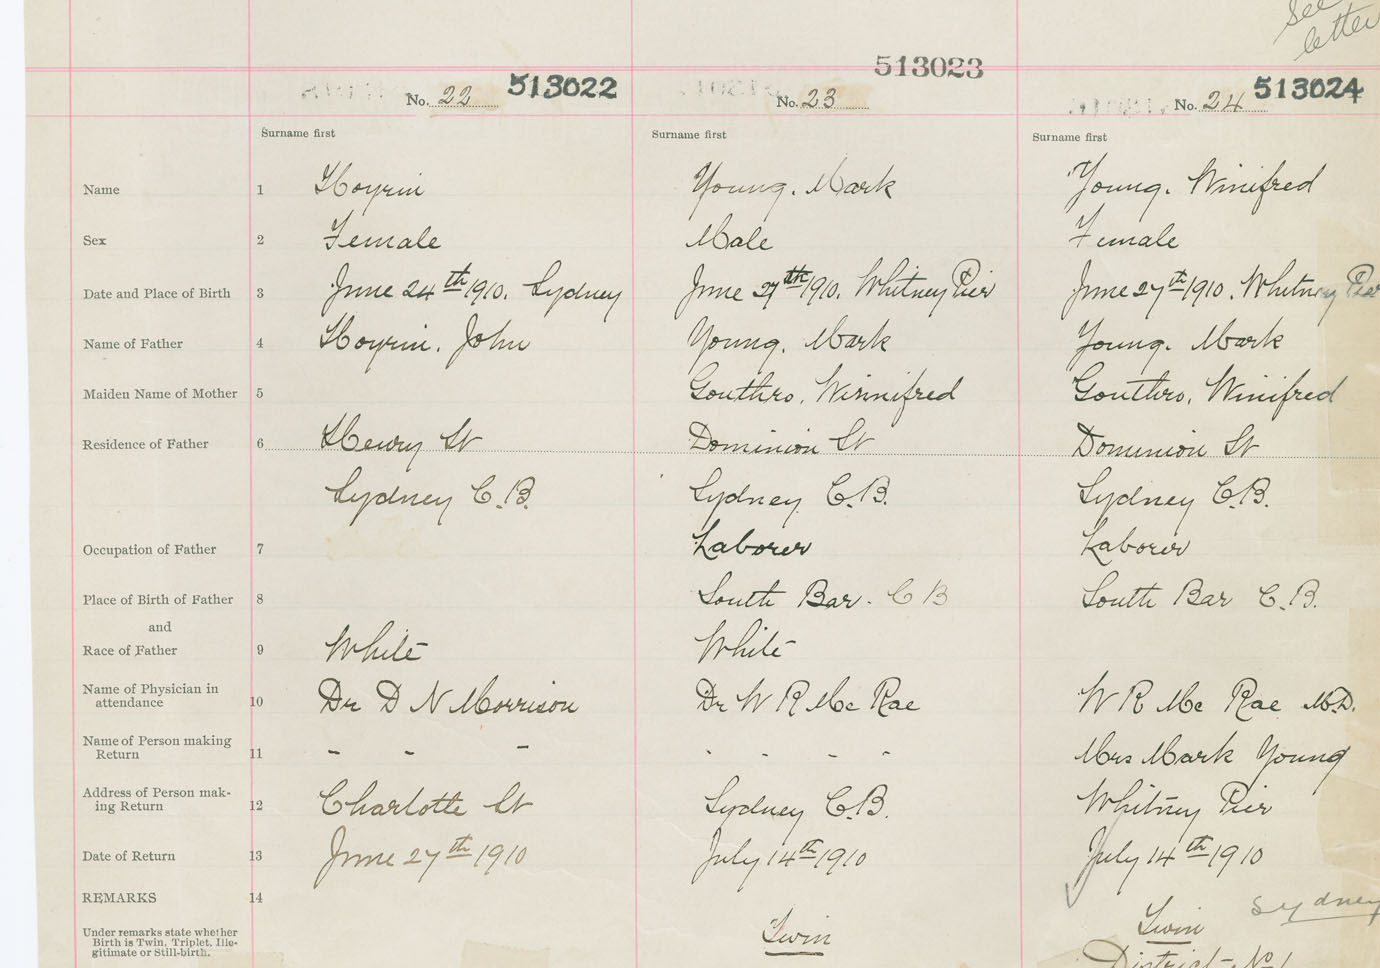 See
letter
No. 22 513022
513023
No. 23
No. 24 513024
Surname first Surname first Surname first
Name 1 Hoyrin Young. Mark Young. Winifred
Sex 2 Female Male Female
Date and Place of Birth 3 June 24th 1910. Sydney June 27th 1910. Whitney Pier June 27th 1910. Whitney Pier
Name of Father 4 Hoyrin. John Young. Mark Young. Mark
Maiden Name of Mother 5 Gouthro, Winnifred Gouthro, Winifred
Residence of Father 6 Henry St Dominion St Dominion St
Sydney C.B. Sydney C.B. Sydney C.B.
Occupation of Father 7 Laborer Laborer
Place of Birth of Father 8 South Bar. C B South Bar C.B.
and
Race of Father 9 White White
Name of Physician in
attendance 10 Dr D N Morrison Dr W R Mc Rae W R Mc Rae M.D.
Name of Person making
Return 11 - - - - - - - Mrs Mark Young
Address of Person mak-
ing Return 12 Charlotte St Sydney C.B. Whitney Pier
Date of Return 13 June 27th 1910 July 14th 1910 July 14th 1910
REMARKS 14
Sydney
Under remarks state whether
Birth is Twin, Triplet, Ille-
gitimate or Still-birth.
Twin Twin
District No 1